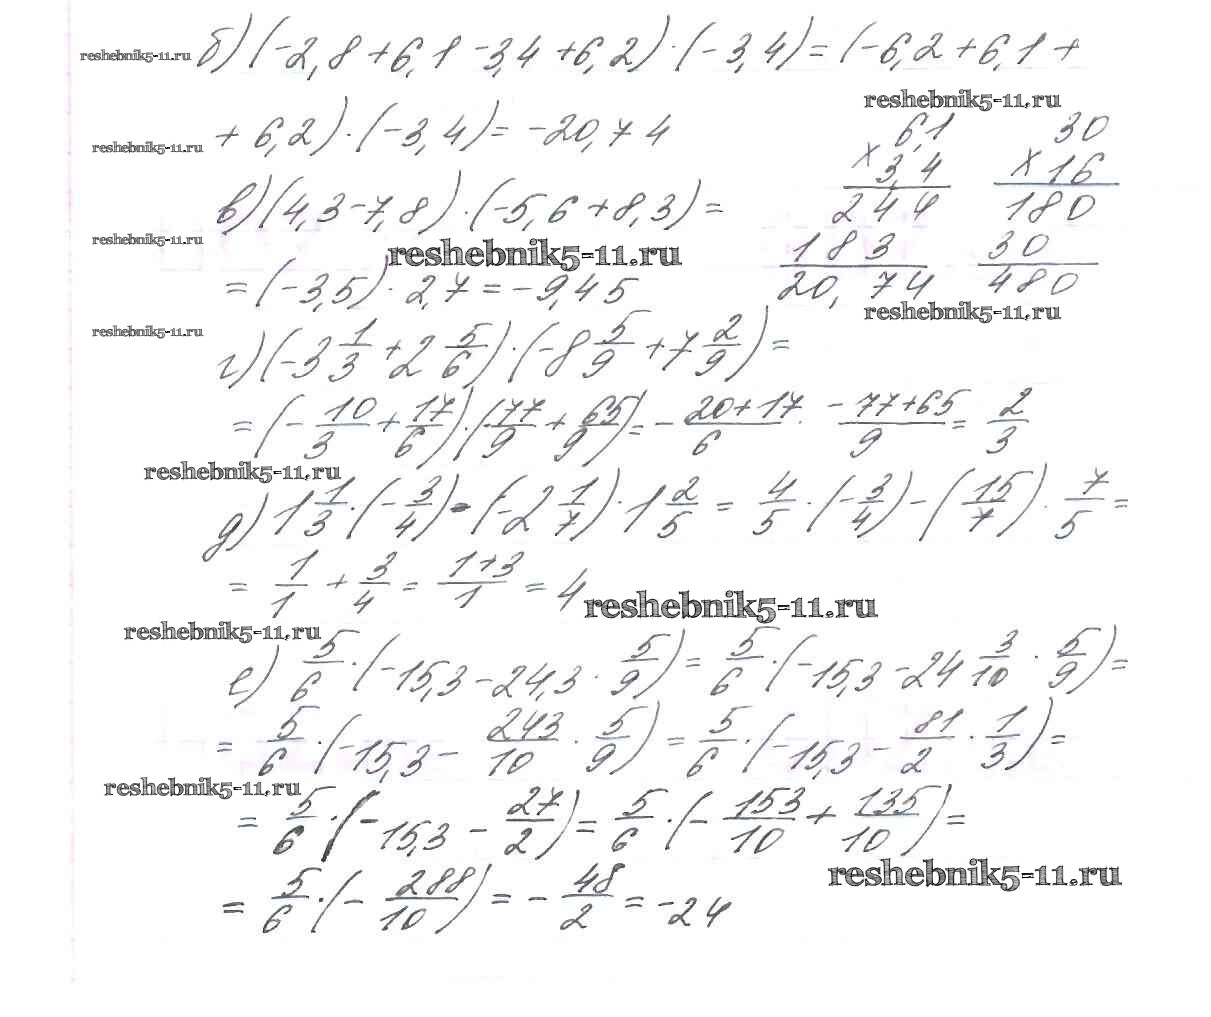 reshebnik5-11.ru б) (-2,8 + 6,1 - 3,4 + 6,2) · (-3,4) = (-6,2 + 6,1 +
reshebnik5-11.ru
reshebnik5-11.ru + 6,2) · (-3,4) = -20,74
6,1
× 3,4
244
183
20,74
30
× 16
180
30
480
в) (4,3 - 7,8) · (-5,6 + 8,3) =
reshebnik5-11.ru reshebnik5-11.ru
= (-3,5) · 2,7 = -9,45
reshebnik5-11.ru
reshebnik5-11.ru г) (-3 1/3 + 2 5/6) · (-8 5/9 + 7 2/9) =
= (-10/3 + 17/6) · (77/9 + 65/9) = - 20+17/6 · -77+65/9 = 2/3
reshebnik5-11.ru
д) 1 1/3 · (-3/4) - (-2 1/7) · 1 2/5 = 4/5 · (-3/4) - (15/7) · 7/5 =
= 1/1 + 3/4 = 1+3/1 = 4
reshebnik5-11.ru
reshebnik5-11.ru
е) 5/6 · (-15,3 - 24,3 · 5/9) = 5/6 · (-15,3 - 24 3/10 · 5/9) =
= 5/6 · (-15,3 - 243/10 · 5/9) = 5/6 · (-15,3 - 81/2 · 1/3) =
reshebnik5-11.ru
= 5/6 · (-15,3 - 27/2) = 5/6 · (-153/10 + 135/10) =
reshebnik5-11.ru
= 5/6 · (-288/10) = -48/2 = -24